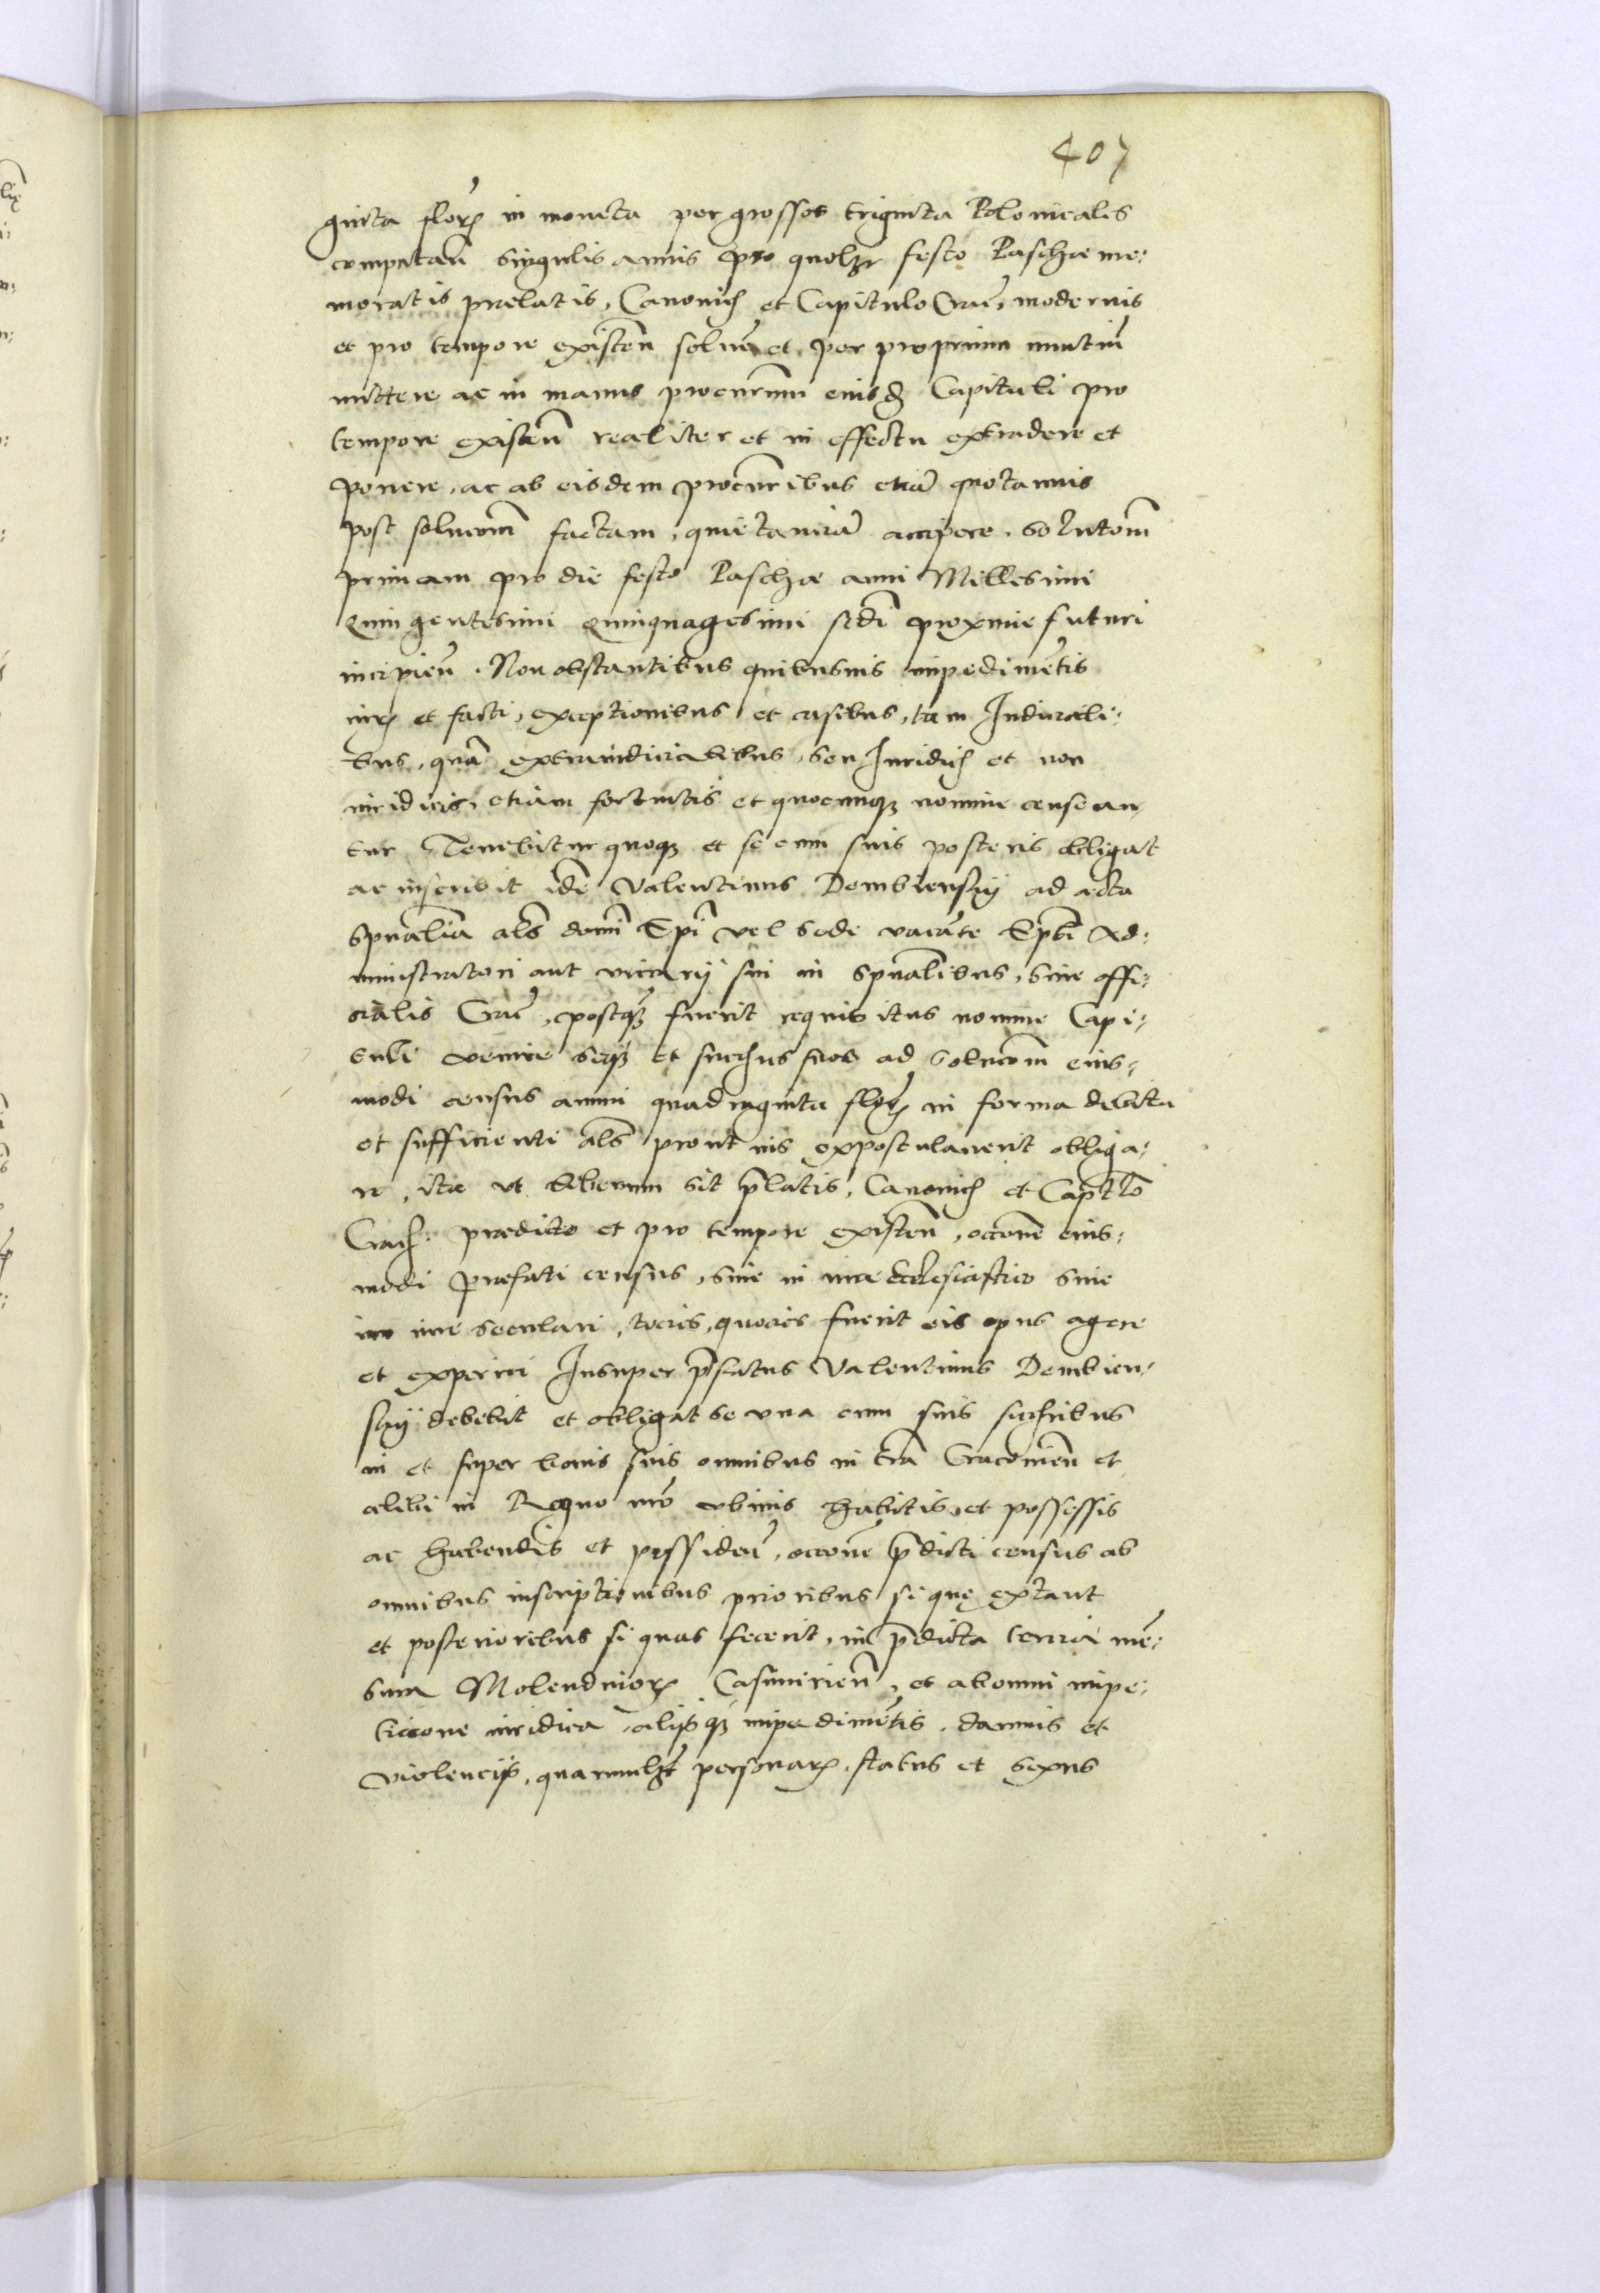 407
ginta floren in moneta per grossos triginta Polonicalis
computan̄ singulis annis pro quolzt festo Paschae me:
moratis praelatis, Canonicis et Capitulo Crac̄, modernis
et pro tempore existen̄ solueret per proprium nunciū
mittere ac in manus procurm̄ eiusd̄ Capituli pro
tempore existen̄ realiter et in effectu extradere et
ponere, ac ab eisdem procuribus etiā quotannis
post solucōm factam, quietanciā accipere. Solutōm
primam pro die festo Paschae anni Millesimi
Quingentesimi Quinquagesimi scdi proxime futuri
incipien̄. Non obstantibus quibusuis impedimētis
iuris et facti, exceptionibus et casibus, tam Iudiciali:
bus, quā extraiudicialibus, seu Iuridicis et non
iuridicis, etiam fortuitis et quocunq; nomine censean
tur Tenebitur quoq; et se cum suis posteris obligat
ac inscribit idē Valentinus Dembiensky ad acta
Spūalia als domī Epī vel sede vacāte Epī Ad:
ministratori aut vicarij sui in spūalibus, siue offi:
cialis Crac̄, postq̄ fuerit requisitus nomine Capi:
tuli venire seq; et succ̄us suos ad solucōm eius:
modi census annui quadraginta floren in forma debita
et sufficienti als prout ius expostulauerit obliga:
re, ita vt liberum sit p̄latis, Canonicis et Capt̄lo
Crac̄. praedicto et pro tempore existen̄, occōne eius:
modi praefati census, siue in iure Ecclesiastico siue
iure seculari, tocies, quocies fuerit eis opus agere
et experiri Insuper p̄fatus Valentinus Dembien:
sky debebit et obligat se vna cum suis succ̄ribus
in et super bonis suis omnibus in trā Cracouien̄ et
alibi in Regno nr̄o vbiuis habitis et possessis
ac habendis et possiden̄, occōne p̄dicti census ab
omnibus inscriptionibus prioribus si quę extant
et posterioribus si quas fecerit, in p̄dicta tercia mē:
sura Molendinorum Casimirien̄, et ab omni impe:
ticione iuridica, alijsq; impedimētis, damnis et
violencijs, quarumlz personarum, status et sexus